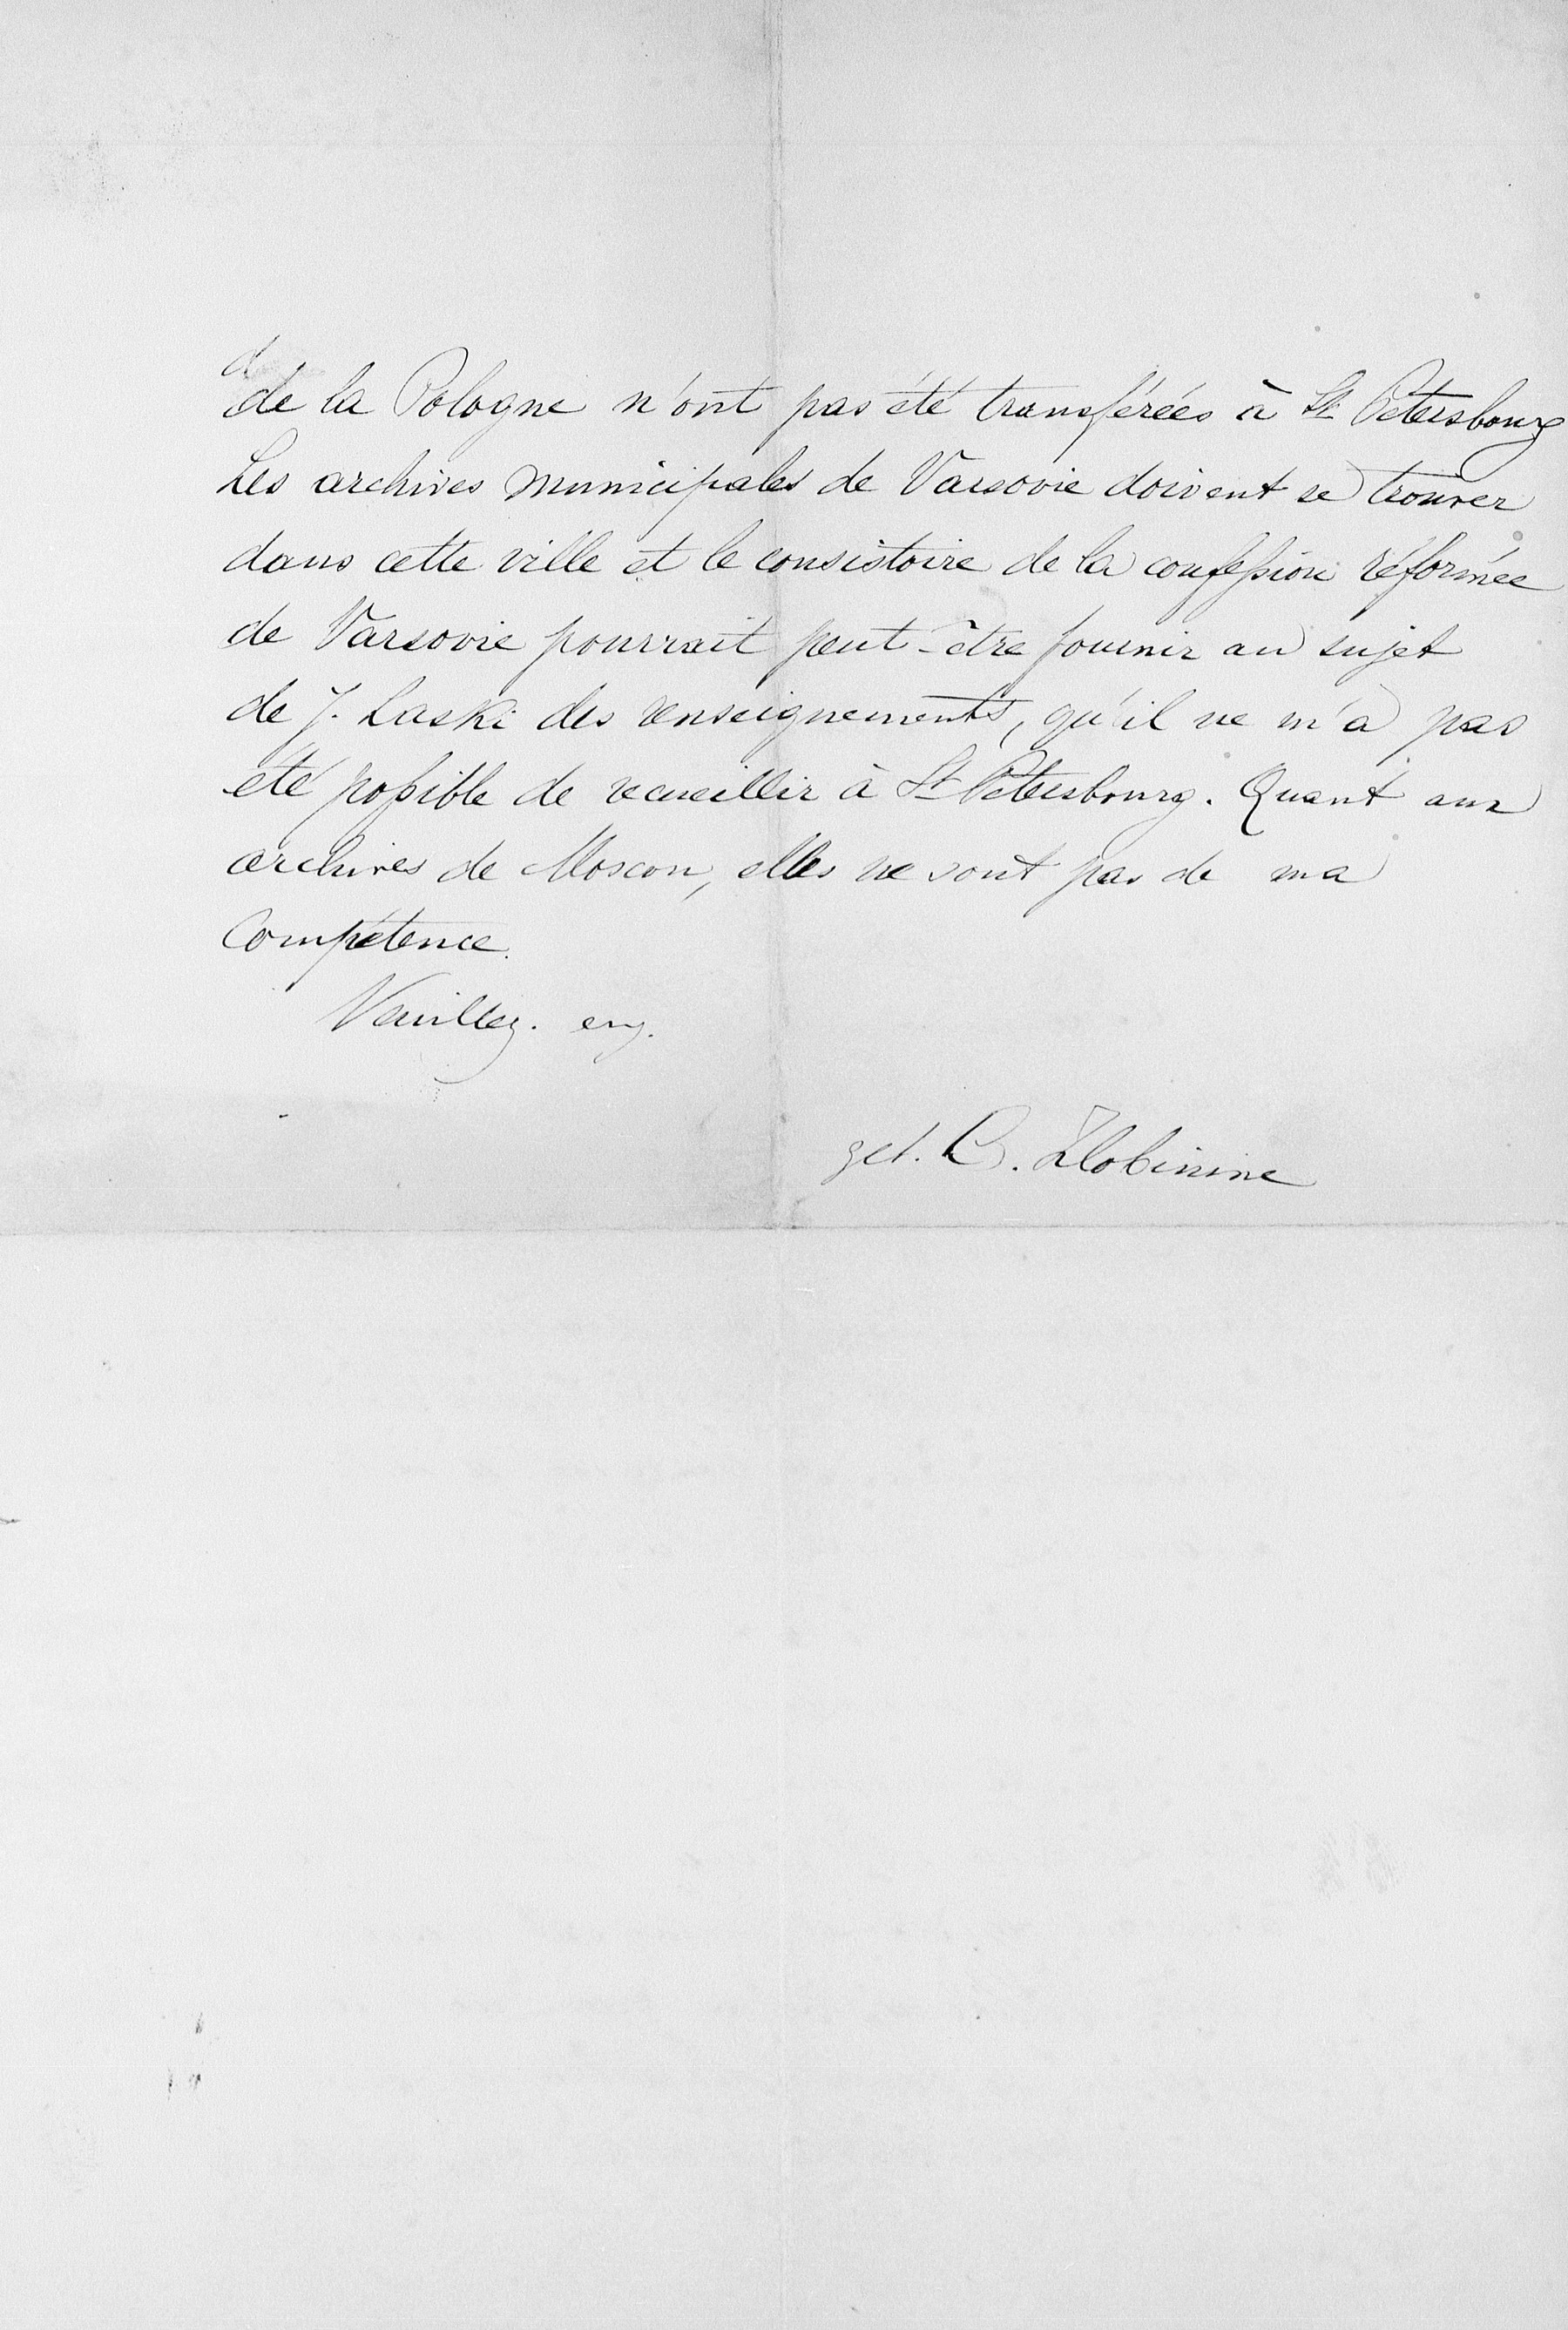 d
de la Pologne n'ont pas été transférées à St Petersbourg
Les archives municipales de Varsovie doivent se trouver
dans cette ville et le consistoire de la confession réformée
de Varsovie pourrait peut-être fournir au sujet
de J. Laski des renseignements, qu'il ne m'a pas
été possible de recueillir à St Petersbourg. Quant aux
archives de Moscou, elles ne sont pas de ma
Compétence.
Veuillez. enz.
get. C. Zlobinine